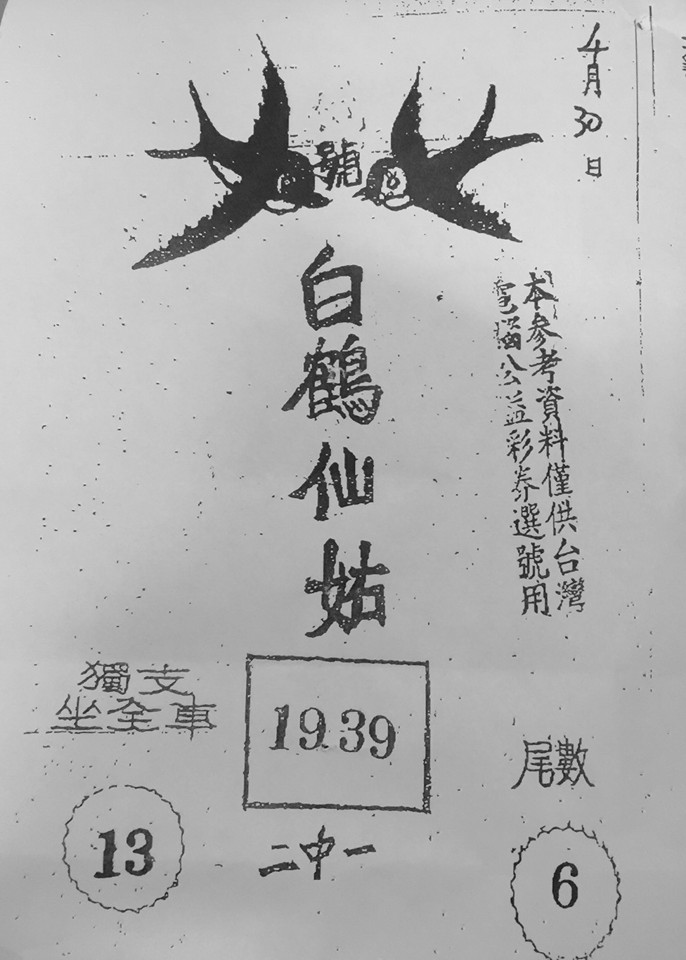 4月30日
號
白鶴仙姑
本參考資料僅供台灣
電腦公益彩券選號用
獨支
坐全車
13
19.39
二中一
尾數
6